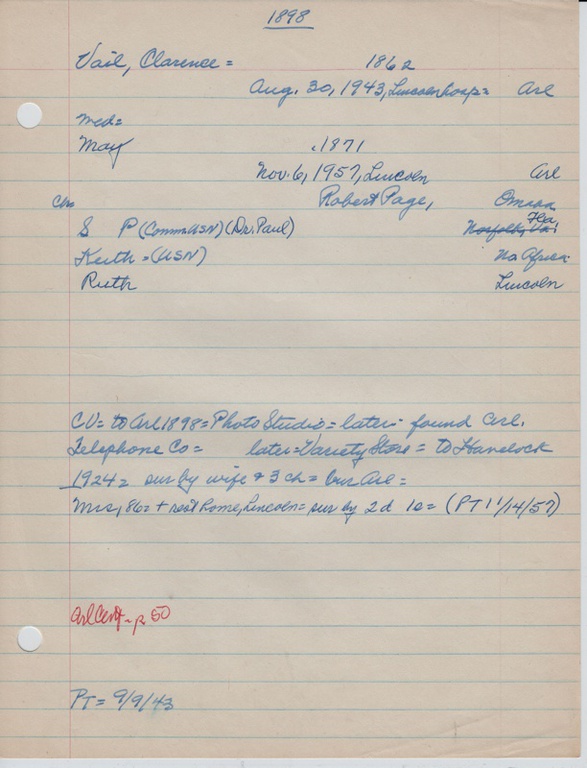 1898
Vail, Clarence = 1862
Aug. 30, 1943, Lincoln hosp = Arl
Med =
May .1871
Nov. 6, 1957, Lincoln Arl
Chr Robert Page, Omaha
S P (Comm. USN) (Dr. Paul) Norfolk, Va. Fla.
Keith = (USN) No Africa
Ruth Lincoln
CV = to Arl 1898 = Photo Studio = later found Arl.
Telephone Co = later = Variety Store = to Havelock
1924 = sur by wife & 3 ch = bur Arl =
Mrs, 86 = + rest home, Lincoln = sur by 2d 1s = (PT 11/14/57)
Arl Cent - p 50
PT = 9/9/43